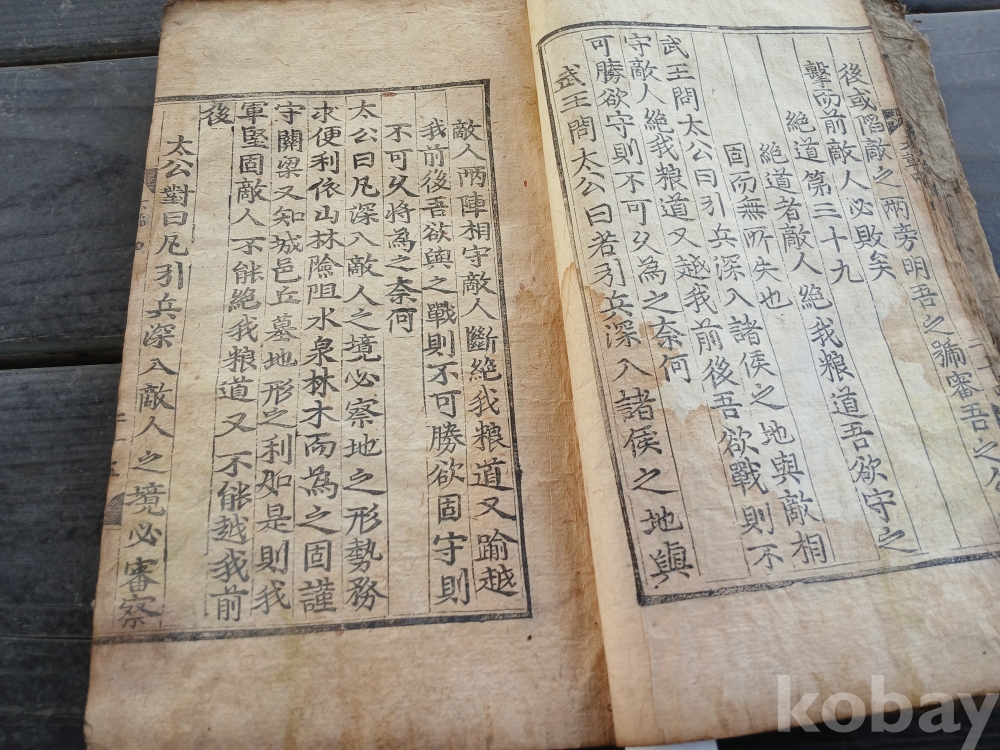 後或陷敵之兩旁明吾之號審吾之
擊而前敵人必敗矣
絶道第三十九
絶道者敵人絶我粮道吾欲守之
固而無所失也
武王問太公曰引兵深入諸侯之地與敵相
守敵人絶我粮道又越我前後吾欲戰則不
可勝欲守則不可久為之奈何
武王問太公曰若引兵深入諸侯之地與
敵人兩陣相守敵人斷絶我粮道又踰越
我前後吾欲與之戰則不可勝欲固守則
不可久將為之奈何
太公曰凡深入敵人之境必察地之形勢務
求便利依山林險阻水泉林木而為之固謹
守關梁又知城邑丘墓地形之利如是則我
軍堅固敵人不能絶我粮道又不能越我前
後
太公對曰凡引兵深入敵人之境必審察
kobay